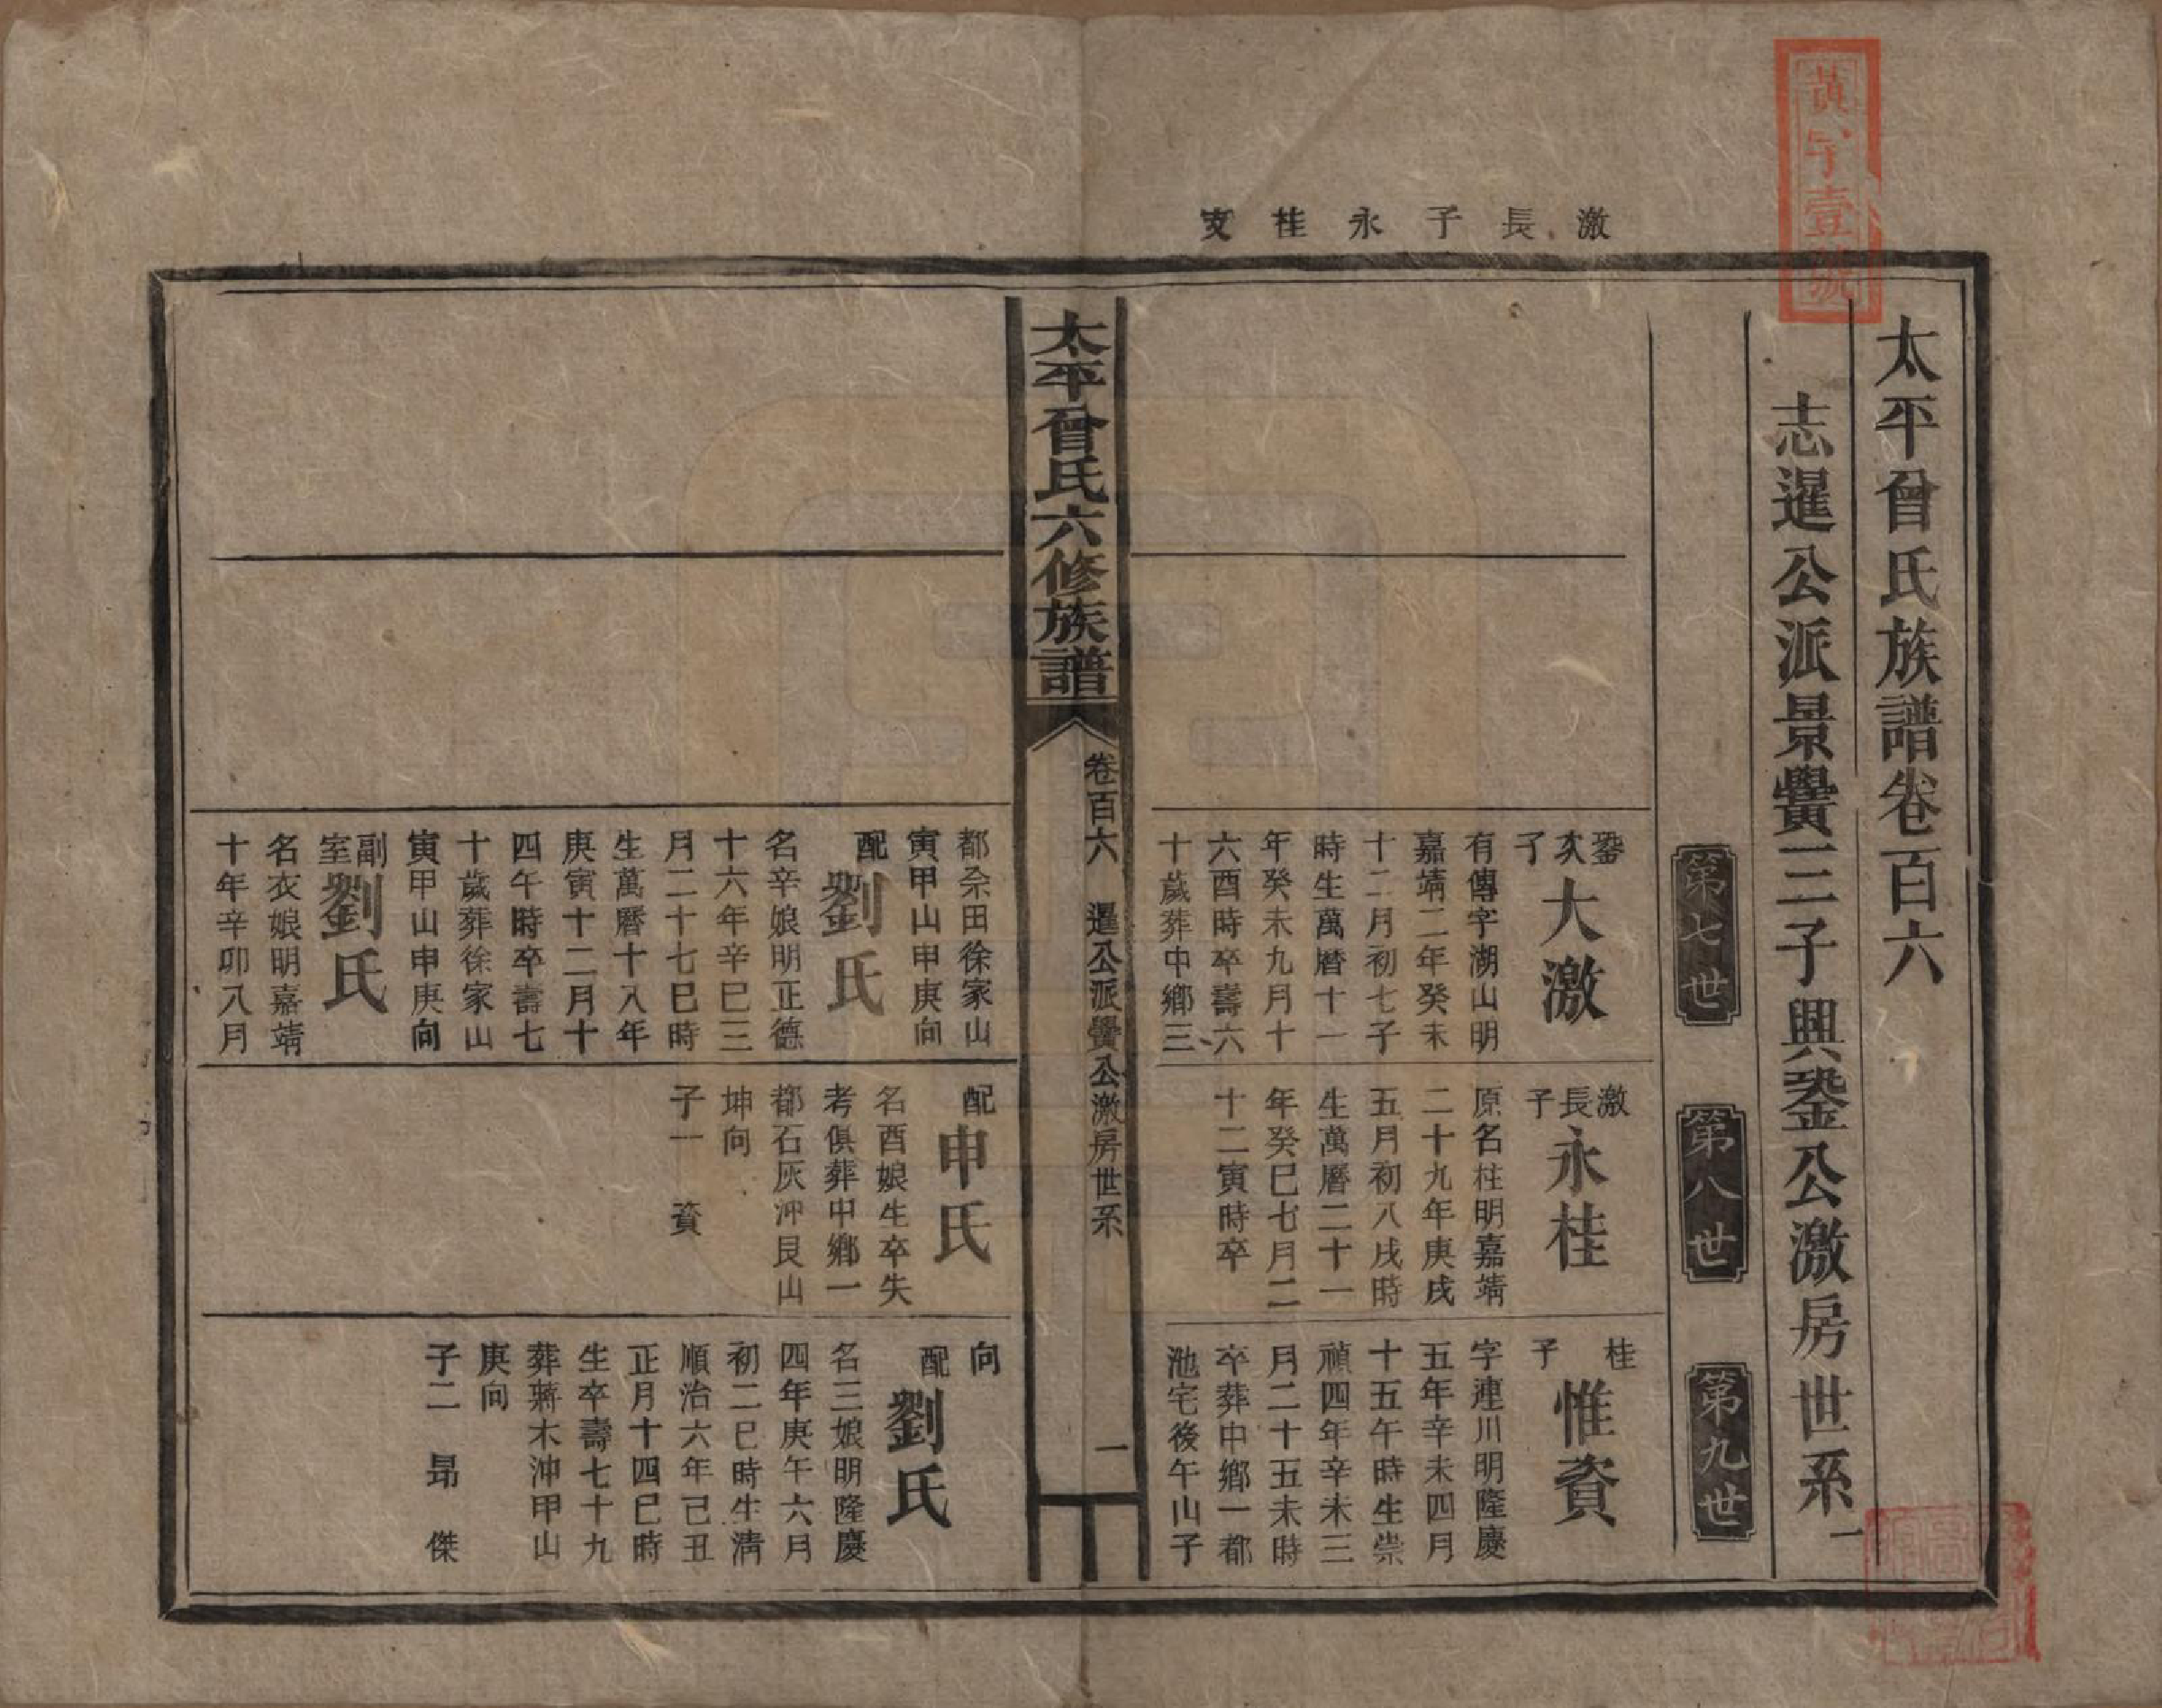 黃字壹號
激長子永桂支
太平曾氏族譜卷百六
志暹公派景黌三子興鋆公激房世系一
第七世
第八世
第九世
鋆次子
大激
有傳字湖山明
嘉靖二年癸未
十二月初七子
時生萬曆十一
年癸未九月十
六酉時卒壽六
十歲葬中鄉三
都佘田徐家山
寅甲山申庚向
配劉氏
名辛娘明正德
十六年辛巳三
月二十七巳時
生萬曆十八年
庚寅十二月十
四午時卒壽七
十歲葬徐家山
寅甲山申庚向
副室劉氏
名衣娘明嘉靖
十年辛卯八月
激長子
永桂
原名柱明嘉靖
二十九年庚戌
五月初八戌時
生萬曆二十一
年癸巳七月二
十二寅時卒
配申氏
名酉娘生卒失
考俱葬中鄉一
都石灰沖艮山
坤向
子一 資
桂子
惟資
字連川明隆慶
五年辛未四月
十五午時生崇
禎四年辛未三
月二十五未時
卒葬中鄉一都
池宅後午山子
向
配劉氏
名三娘明隆慶
四年庚午六月
初二巳時生清
順治六年己丑
正月十四巳時
生卒壽七十九
葬蔣木沖甲山
庚向
子二 昻 傑
太平曾氏六修族譜
卷百六 暹公派黌公激房世系
一